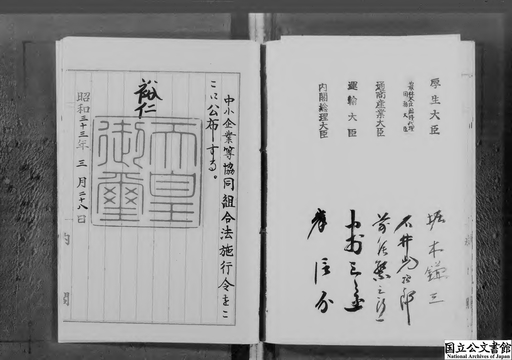 厚生大臣 堀木鎌三
農林大臣臨時代理
国務大臣 石井光次郎
通商産業大臣 前尾繁三郎
運輸大臣 中村三之丞
内閣総理大臣 岸信介
中小企業等協同組合法施行令をこ
こに公布する。
裕仁
天皇
御璽
昭和三十三年三月二十八日
内閣
国立公文書館
National Archives of Japan